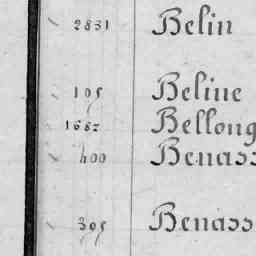 2831 Belin
105 Beline
1682 Bellong
400 Benass
305 Benass